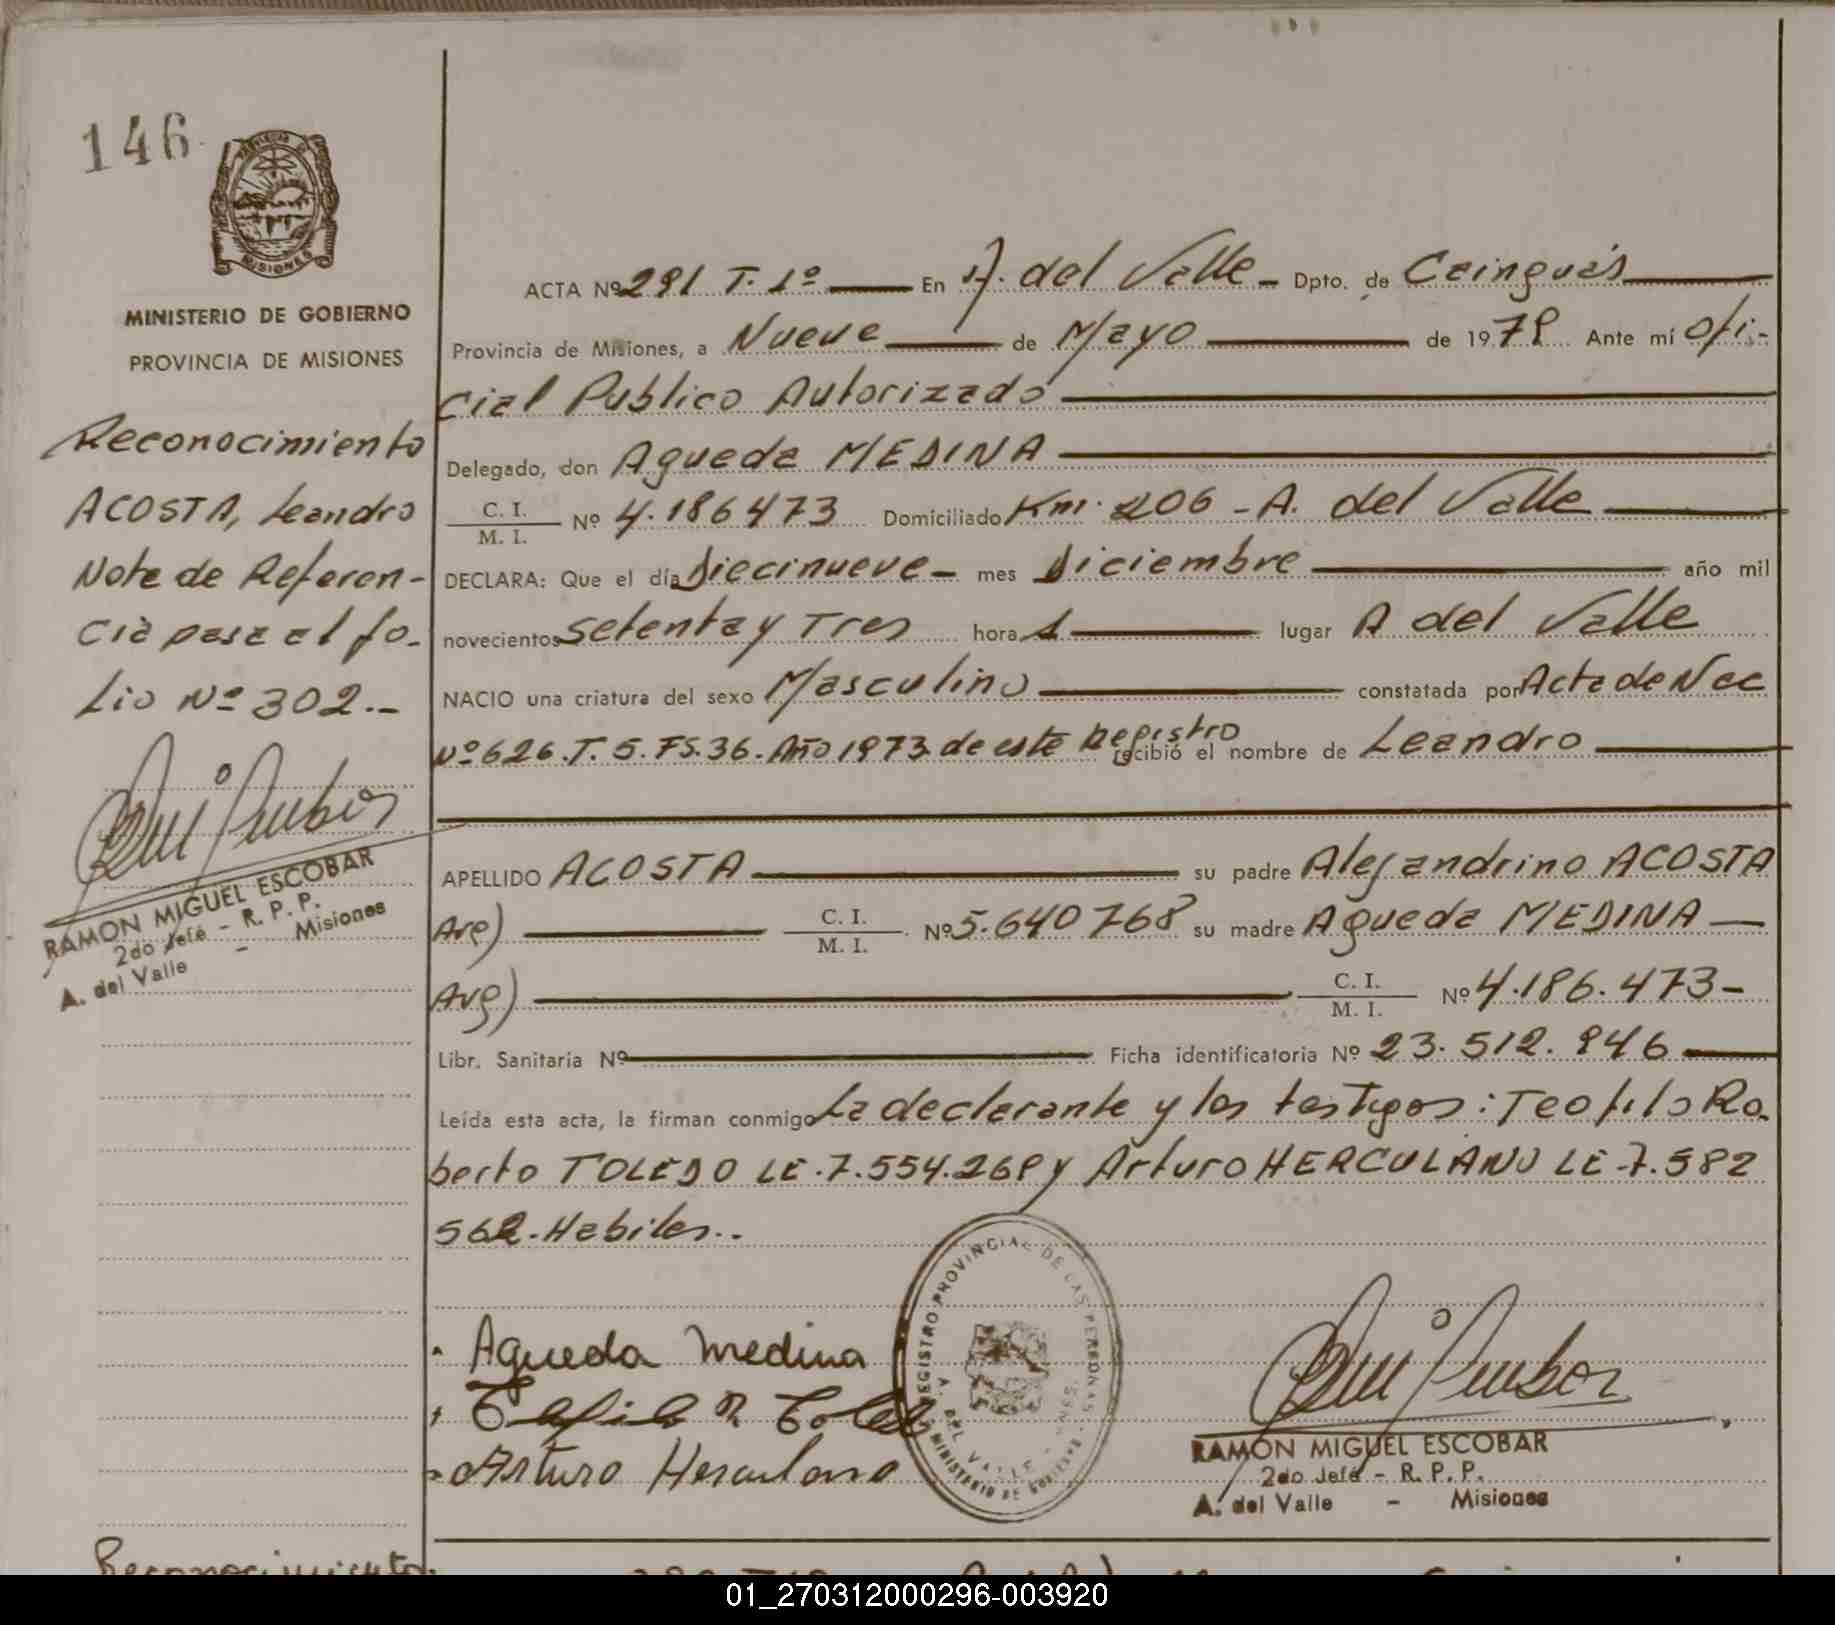 146
PROVINCIA DE
MISIONES
MINISTERIO DE GOBIERNO
PROVINCIA DE MISIONES
Reconocimiento
ACOSTA, Leandro
Nota de Referen-
cia pasa al fo-
lio Nº 302.-
RAMON MIGUEL ESCOBAR
2do Jefe - R. P. P.
A. del Valle - Misiones
ACTA Nº 291 T. 1º En A. del Valle - Dpto. de Cainguás
Provincia de Misiones, a Nueve de Mayo de 1979 Ante mí Ofi-
cial Publico Autorizado
Delegado, don Agueda MEDINA
C. I.
M. I. Nº 4.186473 Domiciliado Km. 206 - A. del Valle
DECLARA: Que el día Diecinueve - mes Diciembre año mil
novecientos setenta y Tres hora 1 lugar A del Valle
NACIO una criatura del sexo Masculino constatada por Acta de Nac
Nº 626. T. 5. FS. 36. Año 1973 de este Registro recibió el nombre de Leandro
APELLIDO ACOSTA su padre Alejandrino ACOSTA
Arg) C. I.
M. I. Nº 5.640768 su madre Agueda MEDINA
Arg) C. I.
M. I. Nº 4.186.473-
Libr. Sanitaria Nº Ficha identificatoria Nº 23.512.946
Leída esta acta, la firman conmigo La declarante y los testigos: Teofilo Ro
berto TOLEDO LE.7.554.269 y Arturo HERCULANO LE-7.582
562-Habiles..
Agueda medina
Arturo Herculano
REGISTRO PROVINCIAL DE LAS PERSONAS - MINISTERIO DE GOBIERNO
A. DEL VALLE - MNES.
RAMON MIGUEL ESCOBAR
2do Jefe - R. P. P.
A. del Valle - Misiones
Reconocimiento
01_270312000296-003920